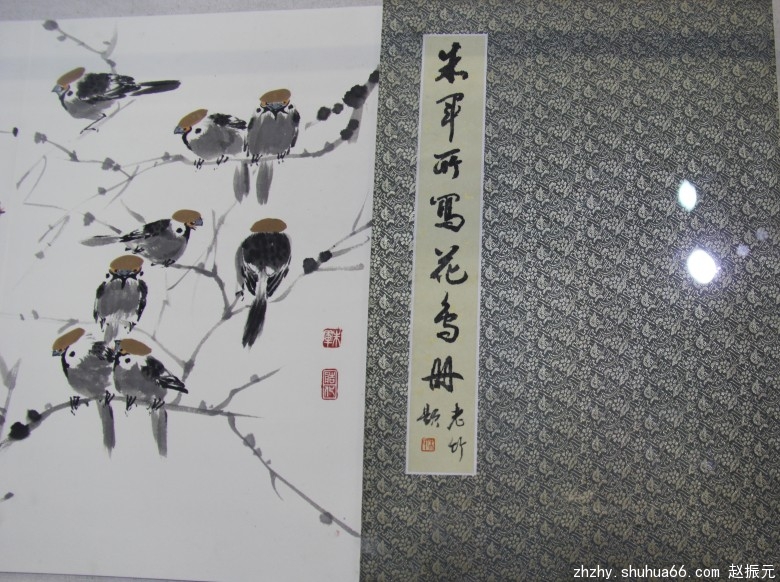 朱軍所寫花鳥册
老竹
題
朱軍
zhzhy.shuhua66.com 赵振元